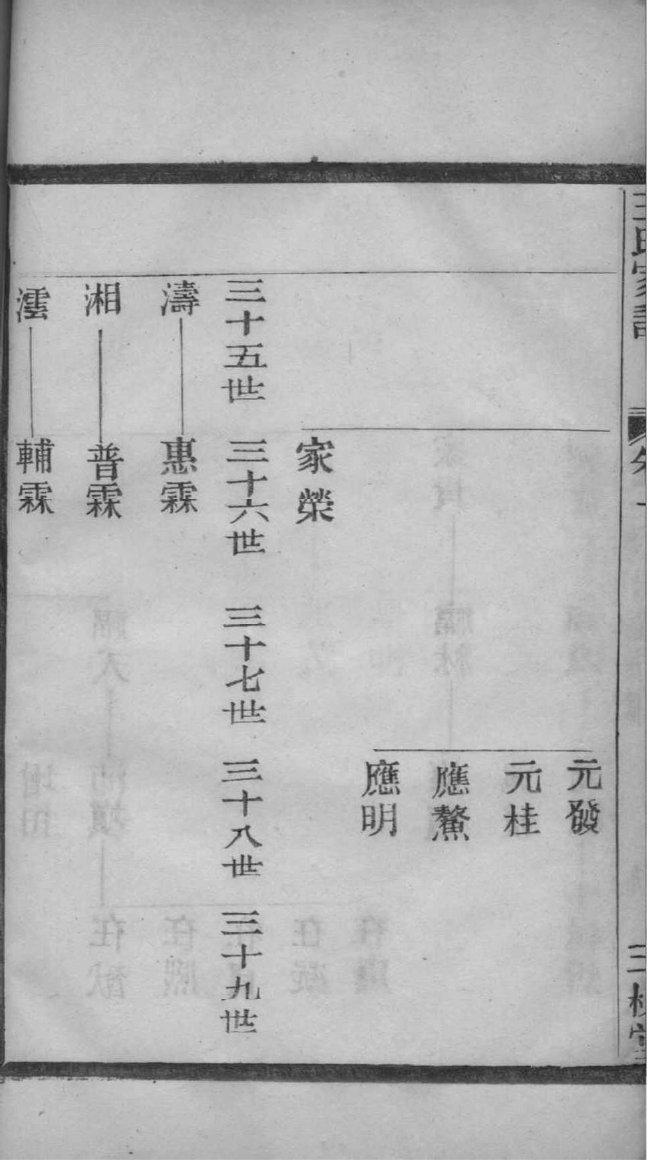 王氏家譜
三槐堂
元發
元桂
應鰲
應明
家榮
三十五世 三十六世 三十七世 三十八世 三十九世
濤 惠霖
湘 普霖
澐 輔霖